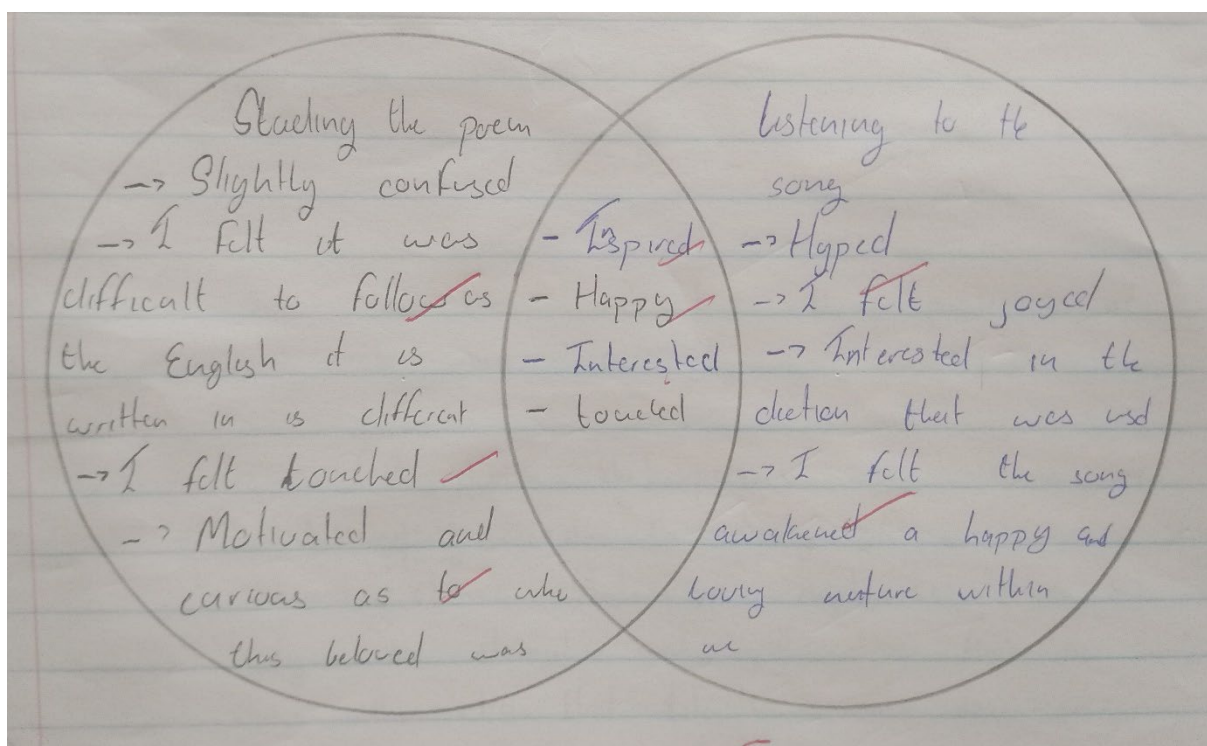 Studing the poem
-> Slightly confused
-> I felt it was
difficult to follow as
the English it is
written in is different
-> I felt touched
-> Motivated and
curious as to who
this beloved was
- Inspired
- Happy
- Interested
- touched
Listening to the
song
-> Hyped
-> I felt joyed
-> Interested in the
diction that was usd
-> I felt the song
awakened a happy and
loving nature within
me